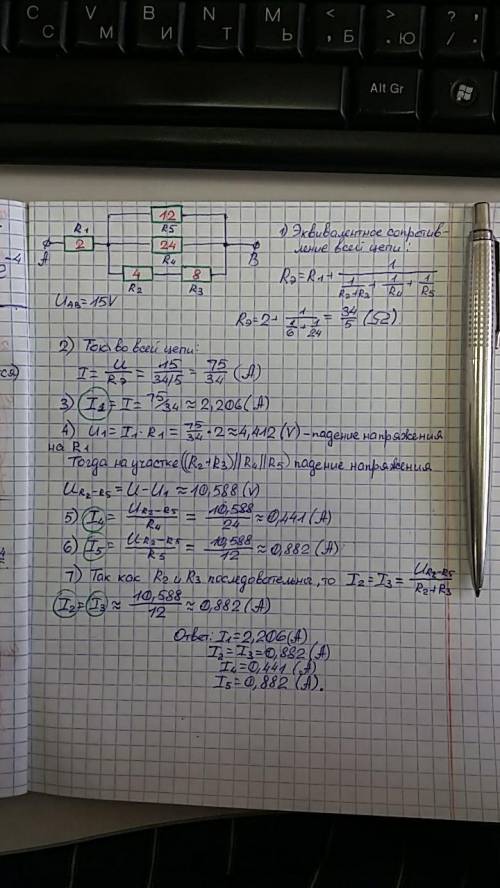 C V B N M < > ? ,
С М И Т Ь , Б . Ю / .
Alt Gr
12
R1 R5
2 24
A R4 B
4 8
R2 R3
UAB = 15V
1) Эквивалентное сопротив-
ление всей цепи:
Rэ = R1 + 1/(1/(R2+R3) + 1/R4 + 1/R5)
Rэ = 2 + 1/(1/6 + 1/24) = 34/5 (Ω)
2) Ток во всей цепи:
I = U/Rэ = 15/(34/5) = 75/34 (A)
3) I1 = I = 75/34 ≈ 2,206 (A)
4) U1 = I1 · R1 = 75/34 · 2 ≈ 4,412 (V) – падение напряжения
на R1
Тогда на участке ((R2+R3)||R4||R5) падение напряжения
UR2-R5 = U - U1 ≈ 10,588 (V)
5) I4 = UR2-R5/R4 = 10,588/24 ≈ 0,441 (A)
6) I5 = UR2-R5/R5 = 10,588/12 ≈ 0,882 (A)
7) Так как R2 и R3 последовательна, то I2 = I3 = UR2-R5/(R2+R3)
I2 = I3 ≈ 10,588/12 ≈ 0,882 (A)
Ответ: I1 = 2,206 (A)
I2 = I3 = 0,882 (A)
I4 = 0,441 (A)
I5 = 0,882 (A).